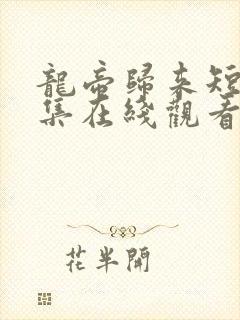 龍帝歸來短
集在綫觀看
花半開